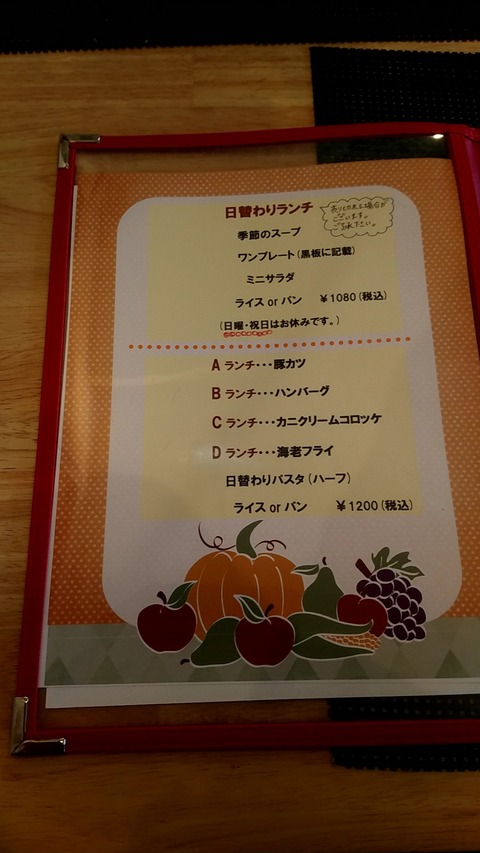 日替わりランチ
売り切れる場合が
ございます。
ご了承下さい。
季節のスープ
ワンプレート(黒板に記載)
ミニサラダ
ライス or パン ￥1080(税込)
(日曜・祝日はお休みです。)
A ランチ・・・豚カツ
B ランチ・・・ハンバーグ
C ランチ・・・カニクリームコロッケ
D ランチ・・・海老フライ
日替わりパスタ(ハーフ)
ライス or パン ￥1200(税込)